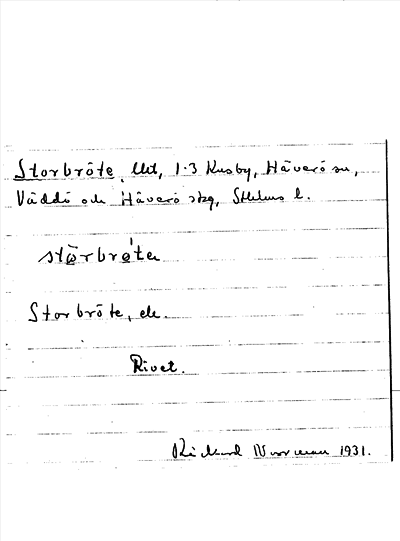 Storbröte, Ut, 1·3 Kusby, Häverö sn,
Väddö och Häverö skg, Sthlms l.
storbröta
Storbröte, de.
Rivet.
Rickard Norrman 1931.